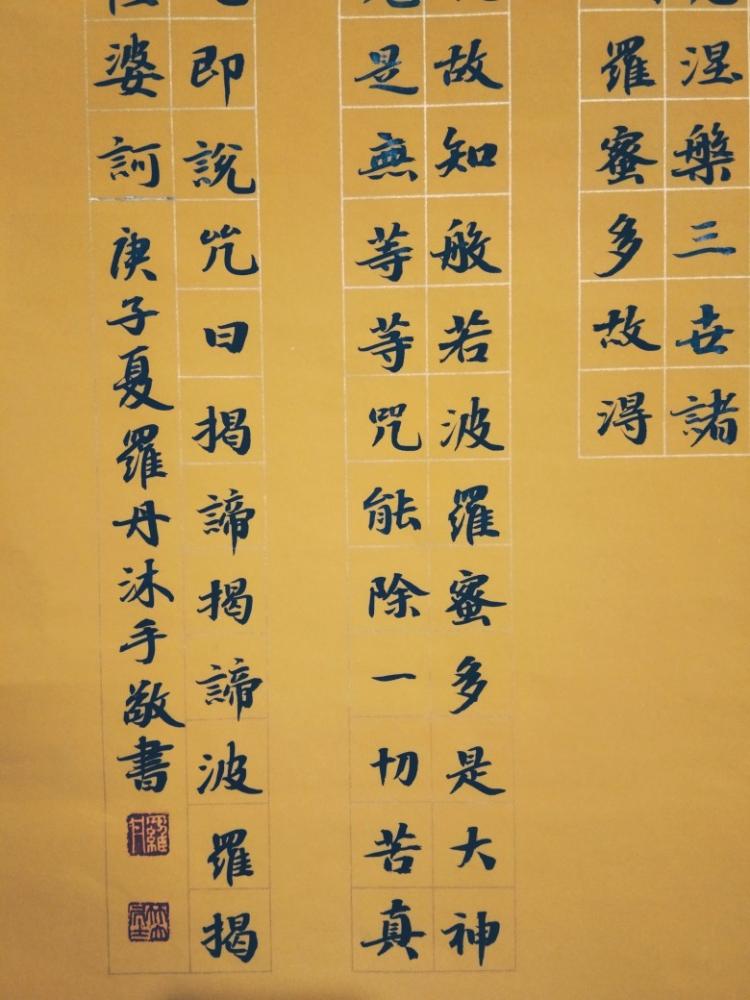 涅槃三世諸
羅蜜多故得
故知般若波羅蜜多是大神
是無等等咒能除一切苦真
即說咒曰揭諦揭諦波羅揭
婆訶
庚子夏羅丹沐手敬書